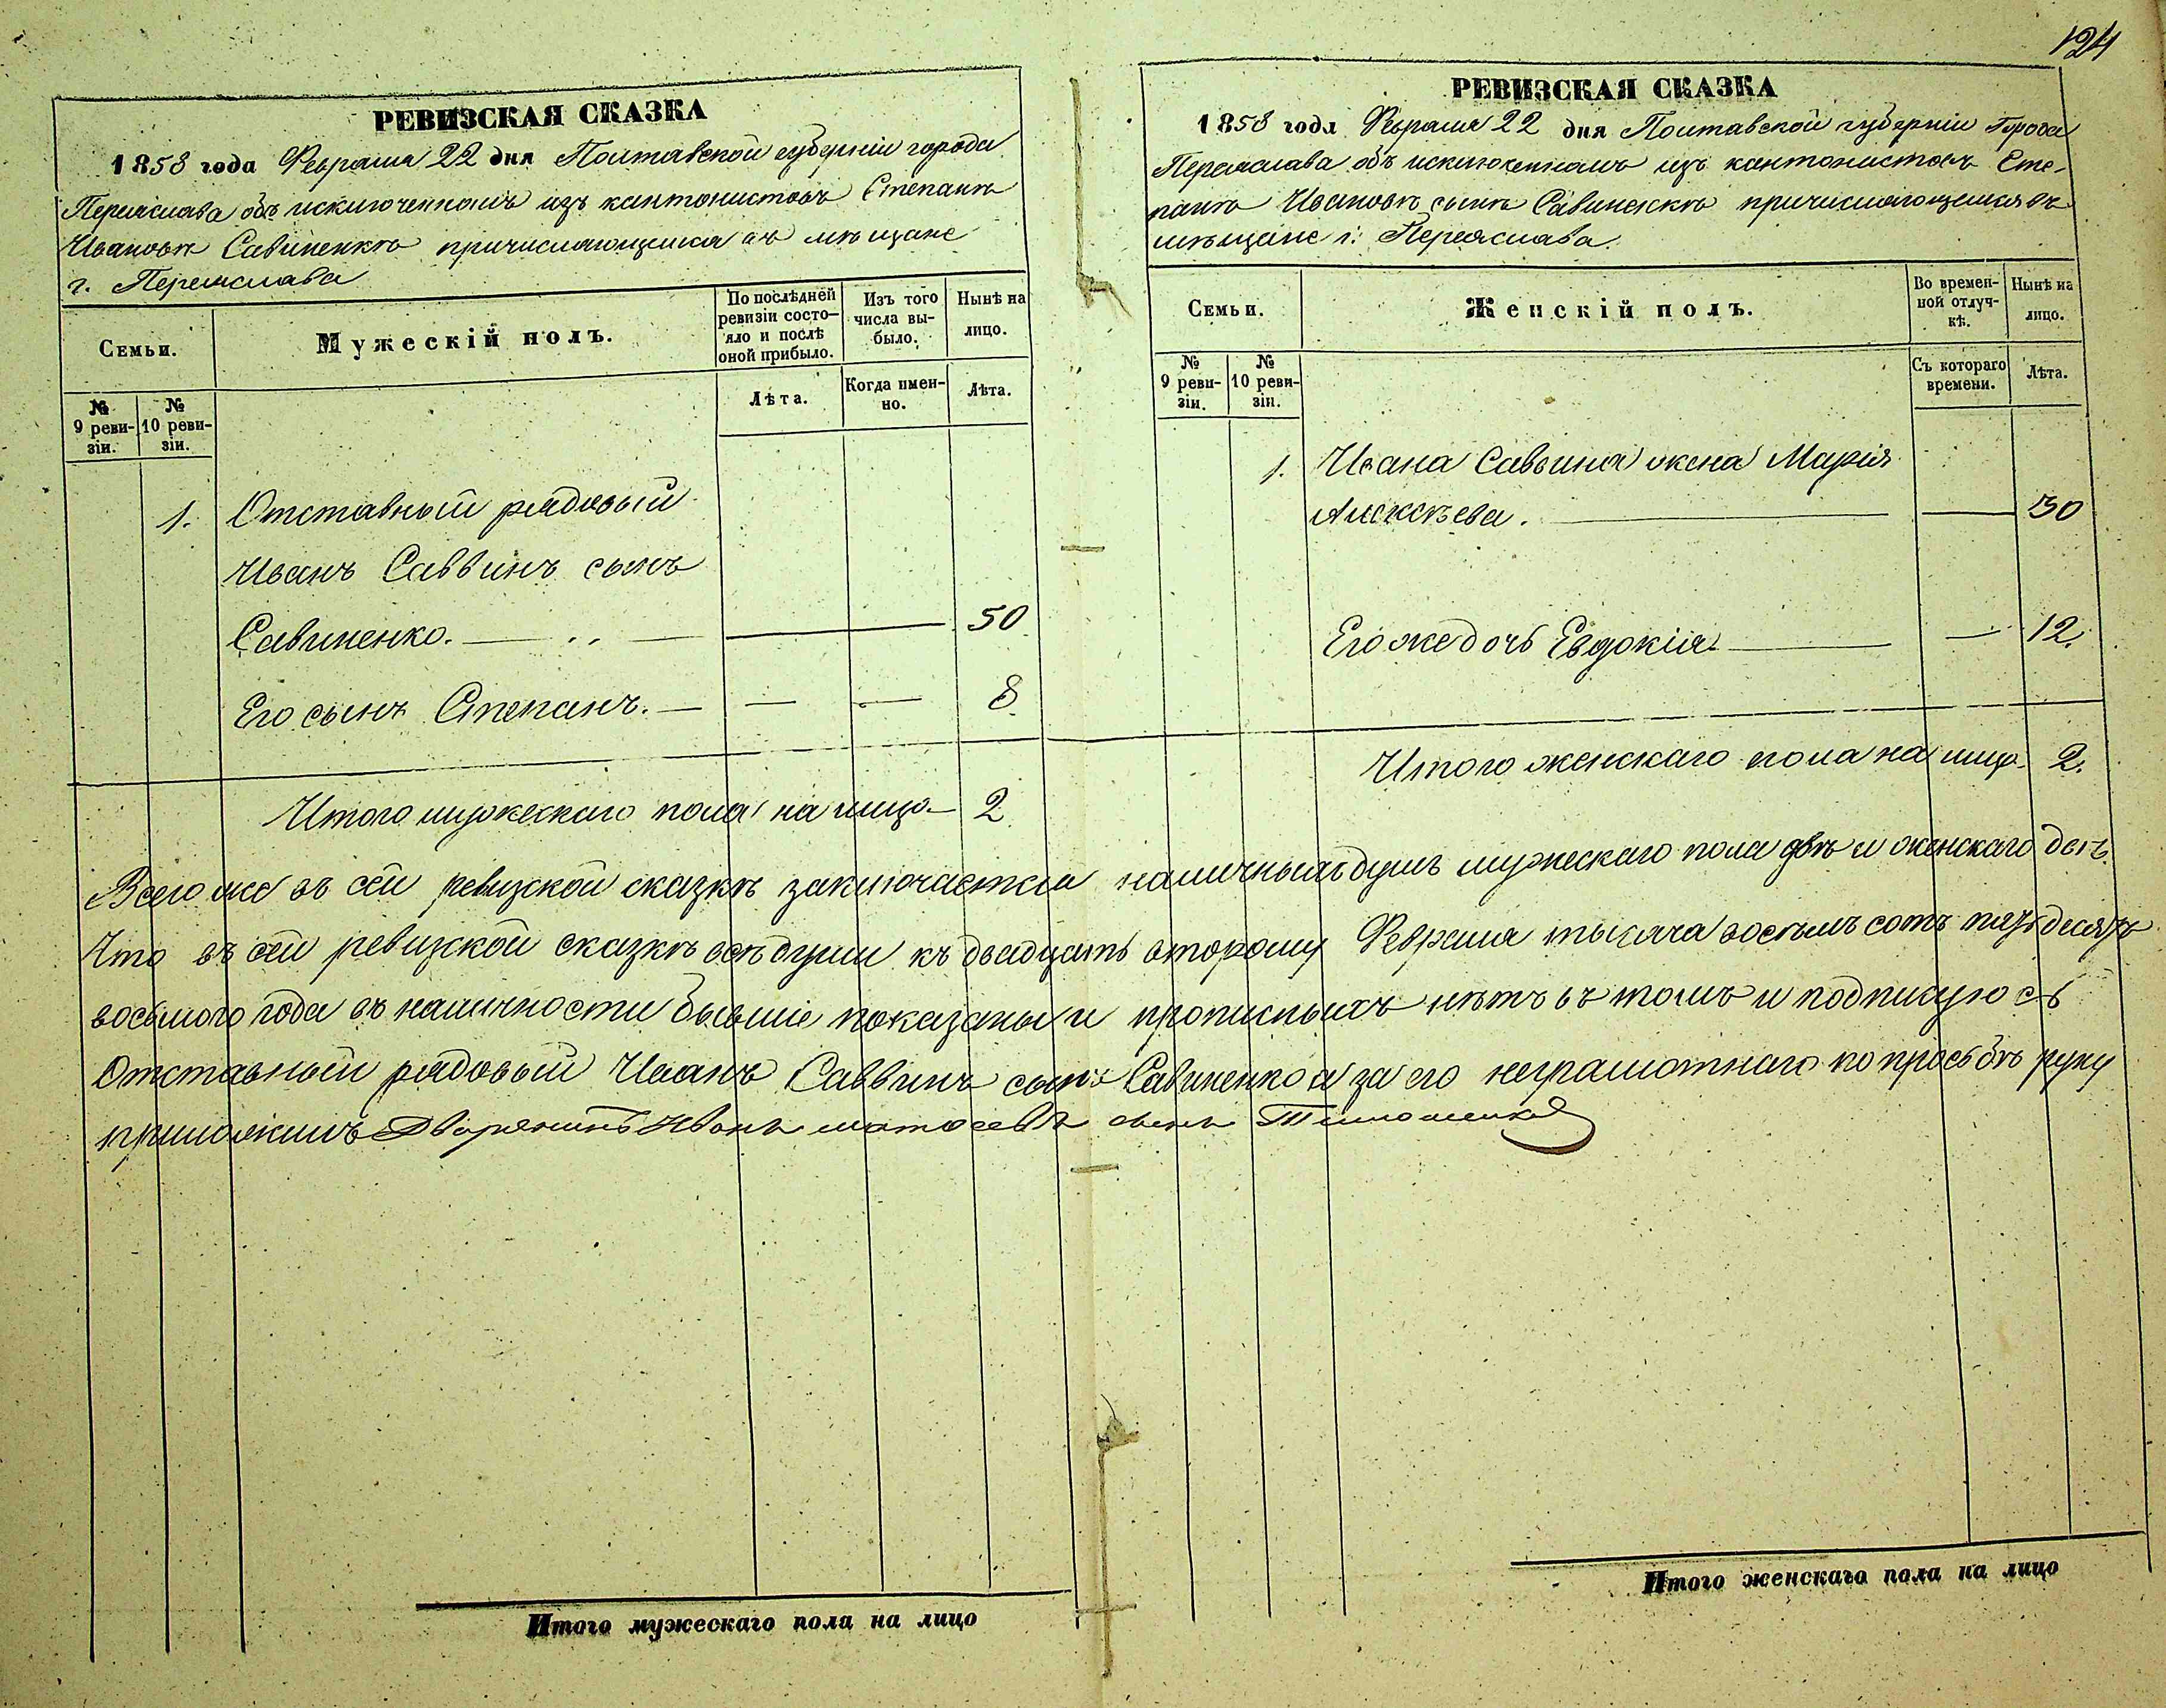 124
РЕВИЗСКАЯ СКАЗКА
1858 года Февраля 22 дня Полтавской губерніи города
Переяслава объ исключенномъ изъ кантонистовъ Степанѣ
Ивановѣ Савиненкѣ причисляющемся въ мѣщане
г. Переяслава
Семьи.
Мужескій полъ.
По послѣдней
ревизіи состо-
яло и послѣ
оной прибыло.
Изъ того
числа вы-
было.
Нынѣ на
лицо.
№
9 реви-
зіи.
№
10 реви-
зіи.
Лѣта.
Когда имен-
но.
Лѣта.
1. Отставный рядовый
Иванъ Саввинъ сынъ
Савиненко. — — 50
Его сынъ Степанъ. — — — 8
Итого мужескаго пола на лицо — 2
РЕВИЗСКАЯ СКАЗКА
1858 года Февраля 22 дня Полтавской губерніи Города
Переяслава объ исключенномъ изъ кантонистовъ Сте-
панѣ Ивановѣ сынѣ Савиненкѣ причисляющемся въ
мѣщане г. Переяслава.
Семьи.
Женскій полъ.
Во времен-
ной отлуч-
кѣ.
Нынѣ на
лицо.
№
9 реви-
зіи.
№
10 реви-
зіи.
Съ котораго
времени.
Лѣта.
1. Ивана Саввина жена Марія
Алексѣева. — — 30
Его же дочь Евдокія — — 12.
Итого женскаго пола на лицо 2.
Всего же въ сей ревизской сказкѣ заключается наличныхъ душъ мужескаго пола двѣ и женскаго двѣ.
Что въ сей ревизской сказкѣ всѣ души къ двадцать второму Февраля тысяча восемь сотъ пятьдесятъ
восьмого года въ наличности бывшіе показаны и прописныхъ нѣтъ въ томъ и подписуюсь
Отставный рядовый Иванъ Саввинъ сынъ Савиненко а за его неграмотнаго по просьбѣ руку
приложилъ Дворянинъ Иванъ сынъ
Итого мужескаго пола на лицо
Итого женскаго пола на лицо